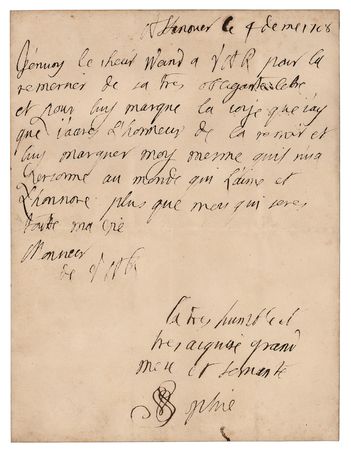 A Hanover le 4 de me 1708
J'envoy le sieur Wand a V A R pour la
remersier de sa tres obligante letre
et pour luy marque la joye que j'ay
que j'aures l'honneur de la revoir et
luy marquer moy mesme quil nia
personne au monde qui l'aime et
l'honnore plus que moy qui seres
toute ma vie
Monsieur
de V A R
la tres humble et
tres aquise grand
mere et servante
Sophie